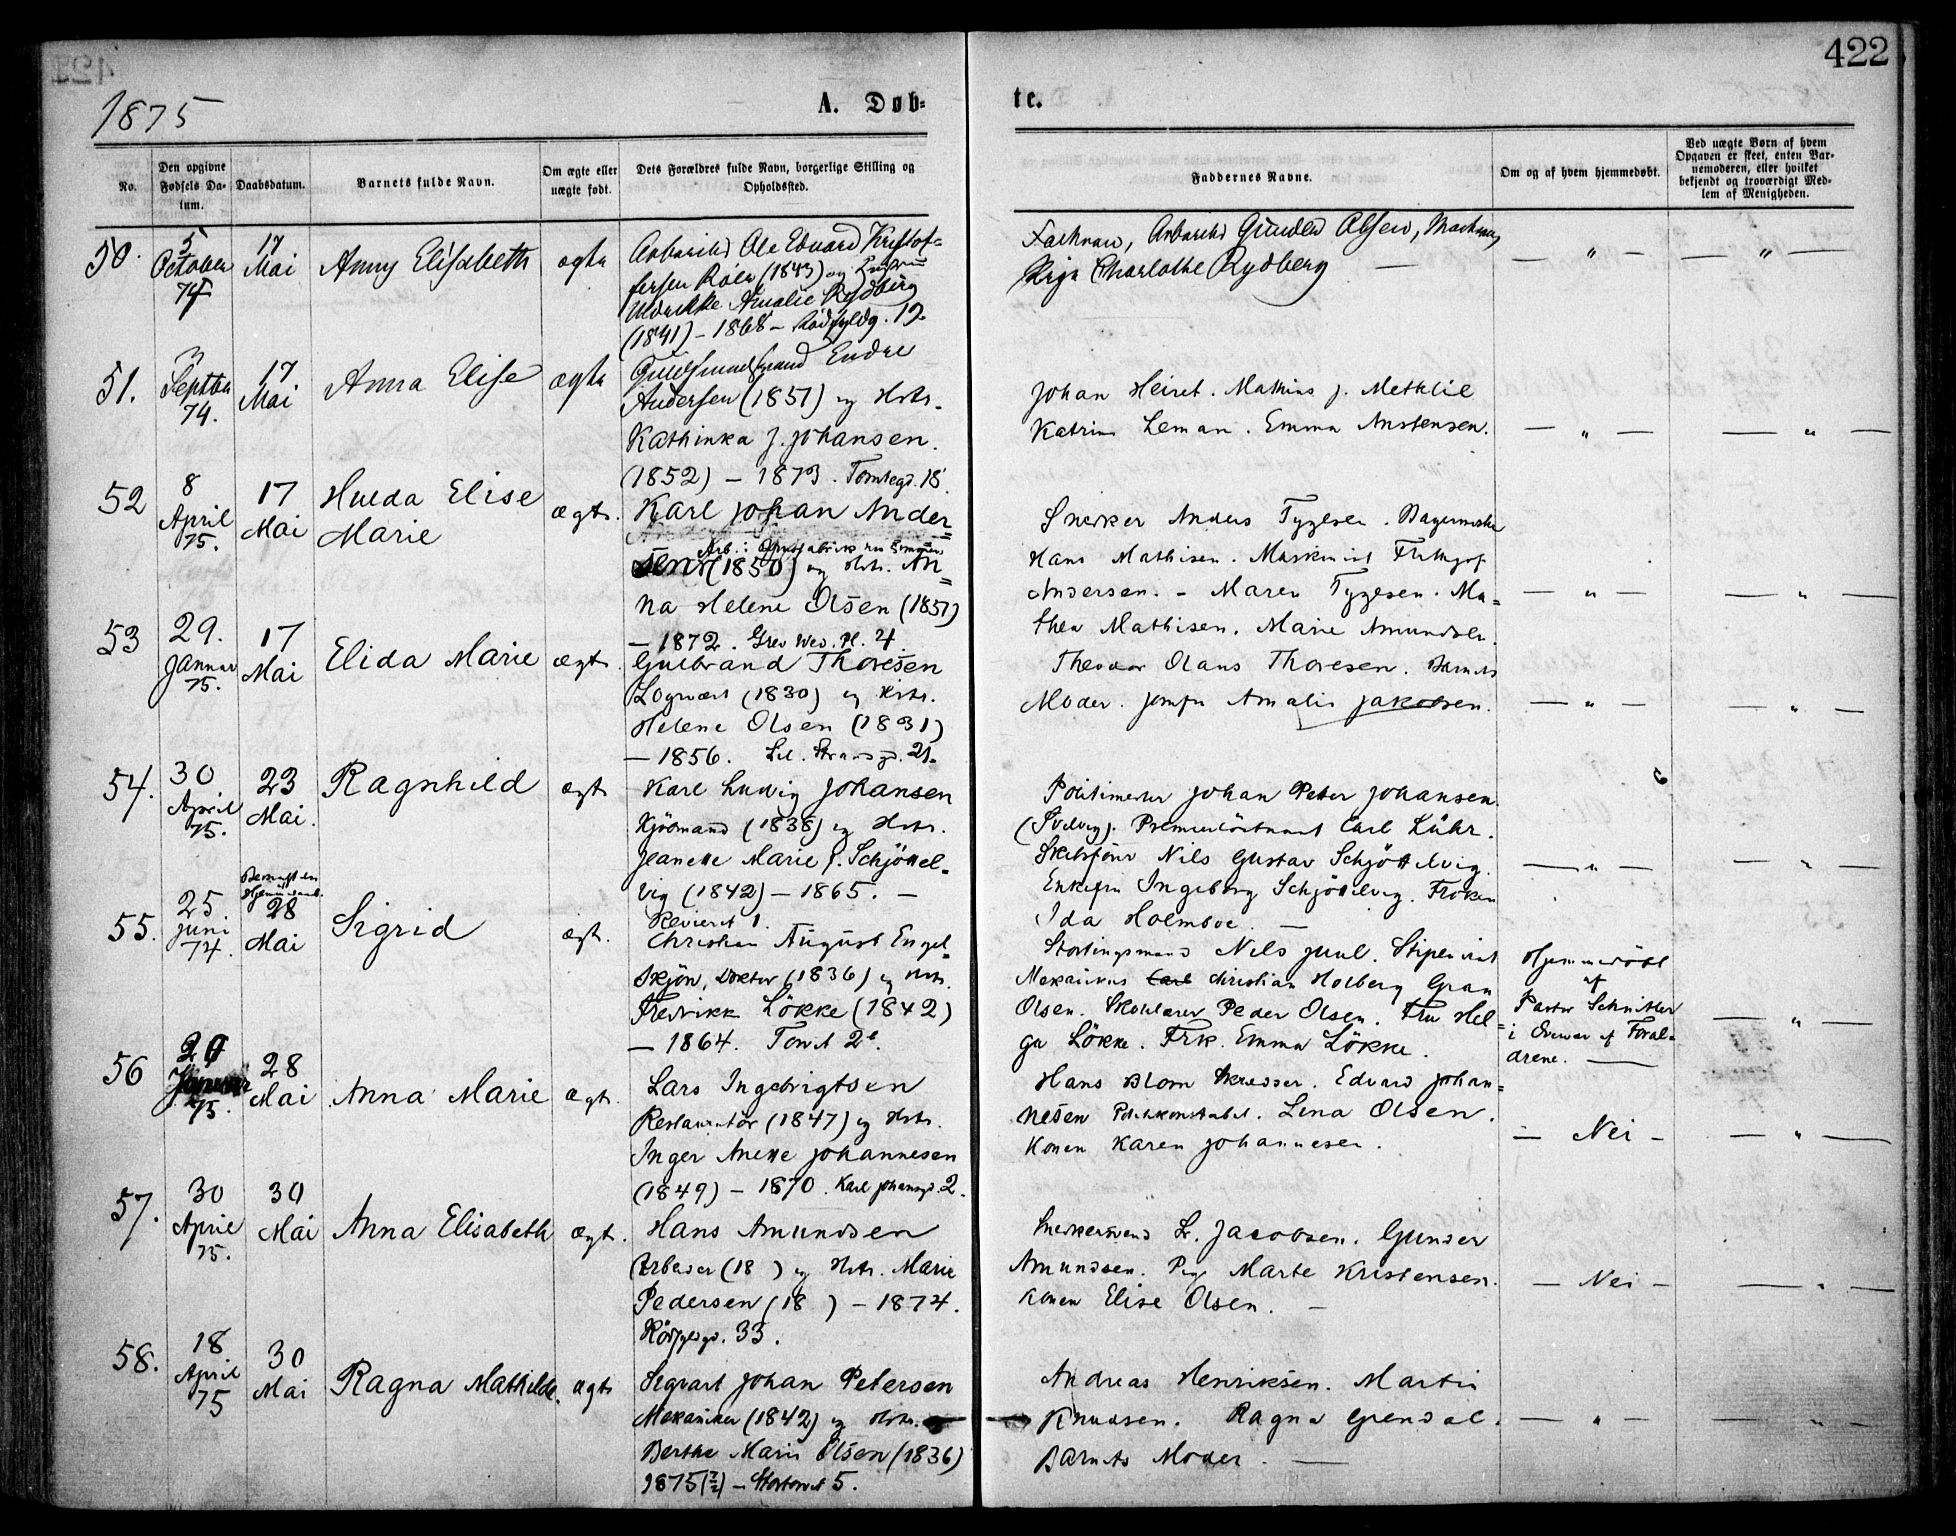 422
1875
A. Døb-
te.
No.
Den opgivne Fødsels Da-
tum.
Daabsdatum.
Barnets fulde Navn.
Om ægte eller
uægte født.
Dets Forældres fulde Navn, borgerlige Stilling og
Opholdssted.
Faddernes Navne.
Om og af hvem hjemmedøbt.
Ved uægte Børn af hvem
Opgaven er skeet, enten Bar-
nemoderen, eller hvilket
bekjendt og troværdigt Med-
lem af Menigheden.
50.
5
October
74
17
Mai
Anny Elisabeth
ægte
Ole Edvard Kristof-
fersen (1843) og
Uldrikke Amalie Rydberg
(1841) – 1868 – 12
Gunder Olsen,
Charlotte Rydberg —
— " —
— " —
51.
3
Septbr
74.
17
Mai
Anna Elise
ægte
Endre
Andersen (1851) og Hstr.
Kathinka J. Johansen.
(1852) – 1873. Tomtegd. 18.
Johan Heiret. Mathias J. Methlie
Katrine Leman. Emma Anstensen.
— " —
— " —
52
8
April
75.
17
Mai
Hulda Elise
Marie
ægte.
Karl Johan Ander=
sen (1850) og Hstr. An=
na Helene Olsen (1851)
– 1872. Grev Wed. Pl. 4.
Snekker Anders Tygesen.
Hans Mathisen. Maskinist Frithjof
Andersen. – Maren Tygesen. Ma=
thea Mathisen. Marie Amundsen.
— " —
— " —
53
29.
Januar
75.
17
Mai
Elida Marie
ægte.
Gulbrand Thoresen
(1830) og Hstr.
Helene Olsen (1831)
– 1856. Lil. Strandgd. 21.
Theodor Olaus Thoresen. Barnets
Moder. Jomfr Amalie Jakobsen.
— " —
— " —
54.
30
April
75.
23
Mai.
Ragnhild
ægte
Karl Ludvig Johansen
Kjøbmand (1838) og Hstr.
Jeanette Marie f. Schjøttel-
vig (1842) – 1865. –
Revieret 1.
Politimester Johan Peter Johansen.
(Svelvig). Premierløitnant Carl Lühr.
Skibsfører Nils Gustav Schjøttelvig.
Enkefru Ingeborg Schjøttelvig. Frøken
Ida Holmboe. —
— " —
— " —
55.
25.
Juni
74.
28
Mai
Sigrid
ægte.
Christian August Engel-
skjøn, Doktor (1836) og Hstr.
Fredrikke Løkke (1842)
– 1864. Torvet 2.
Stortingsmand Nils Juul. Stipendiat
Mekanikus Carl Christian Holberg Gran
Olsen. Skolelærer Peder Olsen. Fru Hel-
ga Løkke. Frk. Emma Løkke.
Hjemmedøbt
af
Pastor Schnitler
i Overvær af Foræl-
drene. —
— " —
56
20
Januar
75.
28
Mai
Anna Marie
ægte.
Lars Ingebrigtsen
Restauratør (1847) og Hstr.
Inger Anette Johannesen
(1849) – 1870. Karl Johansgd. 2.
Hans Blom Skredder. Edvard Johan-
nesen Politikonstabel. Lina Olsen.
Konen Karen Johannesen.
— Nei –
— " —
57.
30
April
75.
30
Mai
Anna Elisabeth
ægte.
Hans Amundsen
Arbeider (18 ) og Hstr. Marie
Pedersen (18 ) – 1874.
Rødfyldgd. 33.
Snekkersvend L. Jacobsen. Gunder
Amundsen. Pige Marte Kristensen.
Konen Elise Olsen. –
— Nei –
— " —
58.
18
April
75
30
Mai
Ragna Mathilde.
ægte
Sigvart Johan Petersen
Mekaniker (1842) og Hstr.
Berthe Marie Olsen (1836)
1875 (7/2) – Stortorvet 5.
Andreas Henriksen. Martin
Knudsen. Ragna Grendal.
Barnets Moder. —
— " —
— " —